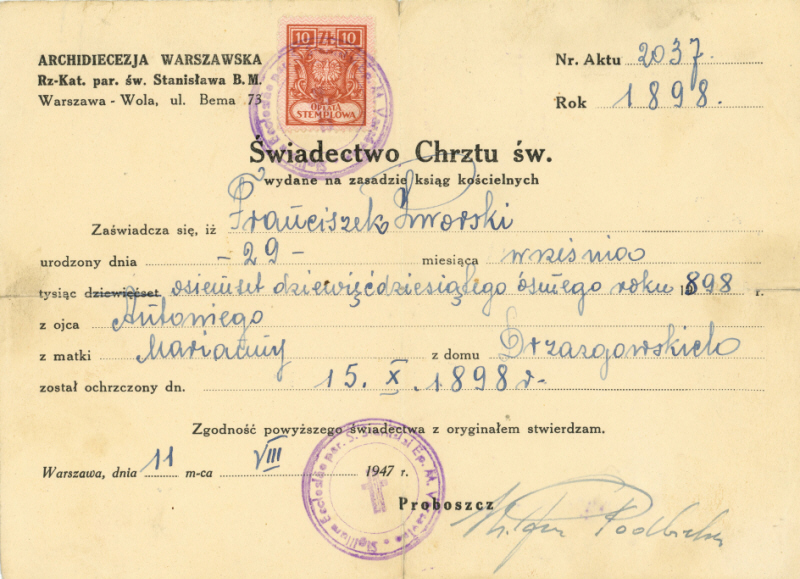 10 ZŁ 10
OPŁATA
STEMPLOWA
ARCHIDIECEZJA WARSZAWSKA
Rz-Kat. par. św. Stanisława B. M.
Warszawa - Wola, ul. Bema 73
Nr. Aktu 2037
Rok 1898.
Świadectwo Chrztu św.
wydane na zasadzie ksiąg kościelnych
Zaświadcza się, iż Franciszek Zworski
urodzony dnia - 29 - miesiąca września
tysiąc dziewięćset osiemset dziewięćdziesiątego ósmego roku 1898 r.
z ojca Antoniego
z matki Marianny z domu Drzazgowskich
został ochrzczony dn. 15. X. 1898 r.
Zgodność powyższego świadectwa z oryginałem stwierdzam.
Warszawa, dnia 11 m-ca VIII 1947 r.
Proboszcz